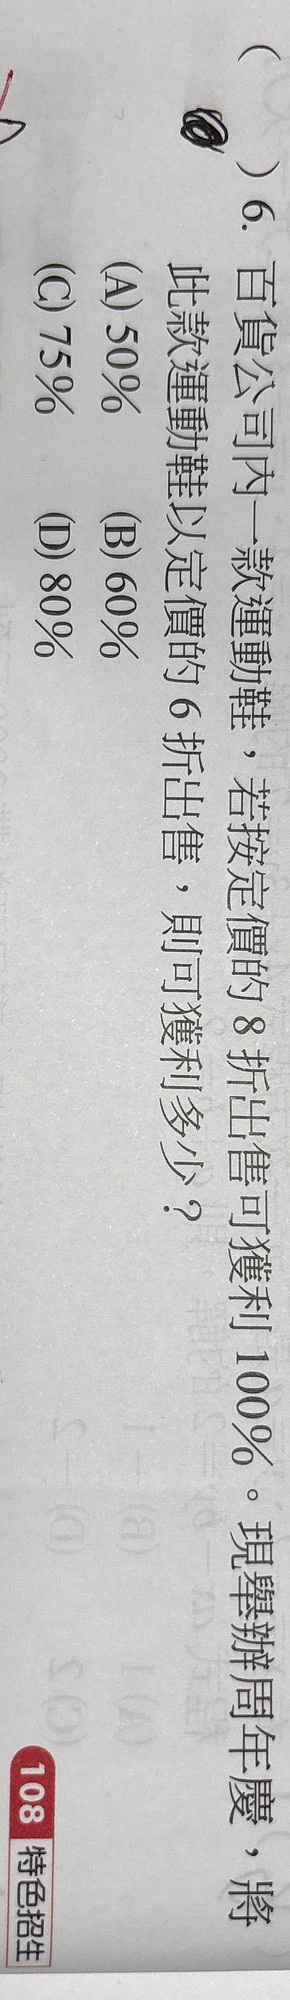 ( ) 6. 百貨公司內一款運動鞋，若按定價的 8 折出售可獲利 100%。現舉辦周年慶，將
此款運動鞋以定價的 6 折出售，則可獲利多少？
(A) 50% (B) 60%
(C) 75% (D) 80%
108 特色招生